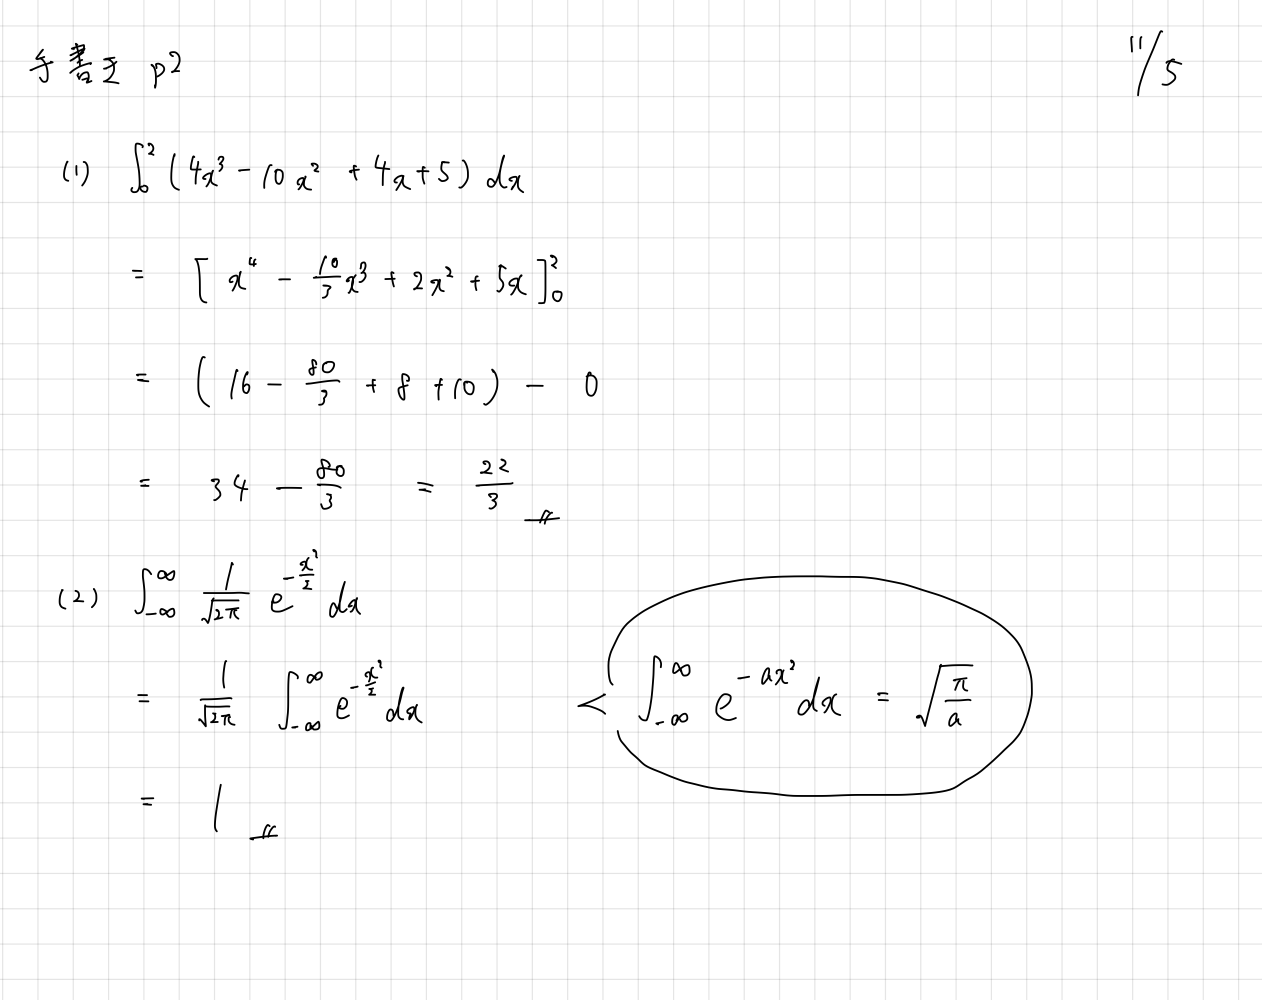 手書き p2
11/5
(1) ∫_0^2 (4x^3 - 10x^2 + 4x + 5) dx
= [x^4 - 10/3 x^3 + 2x^2 + 5x]_0^2
= (16 - 80/3 + 8 + 10) - 0
= 34 - 80/3 = 22/3
(2) ∫_{-∞}^{∞} 1/√(2π) e^{-x^2/2} dx
= 1/√(2π) ∫_{-∞}^{∞} e^{-x^2/2} dx < ∫_{-∞}^{∞} e^{-ax^2} dx = √(π/a)
= 1